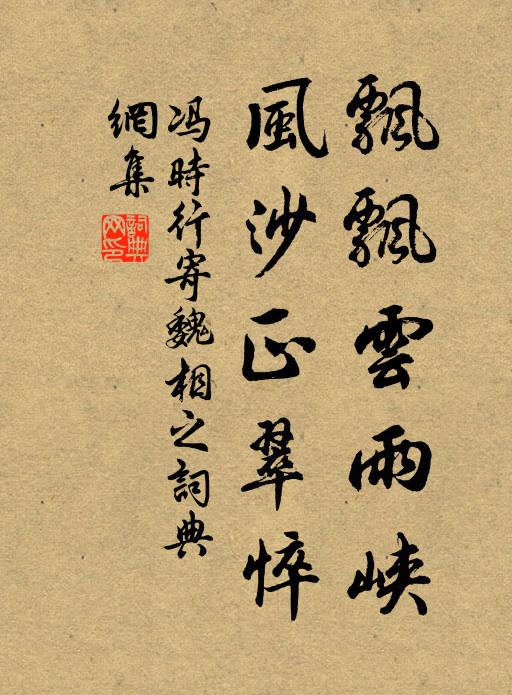 飄飄雲雨峽
風沙正翠悴
冯時行寄魏相之詞典
網集
詞典
网印